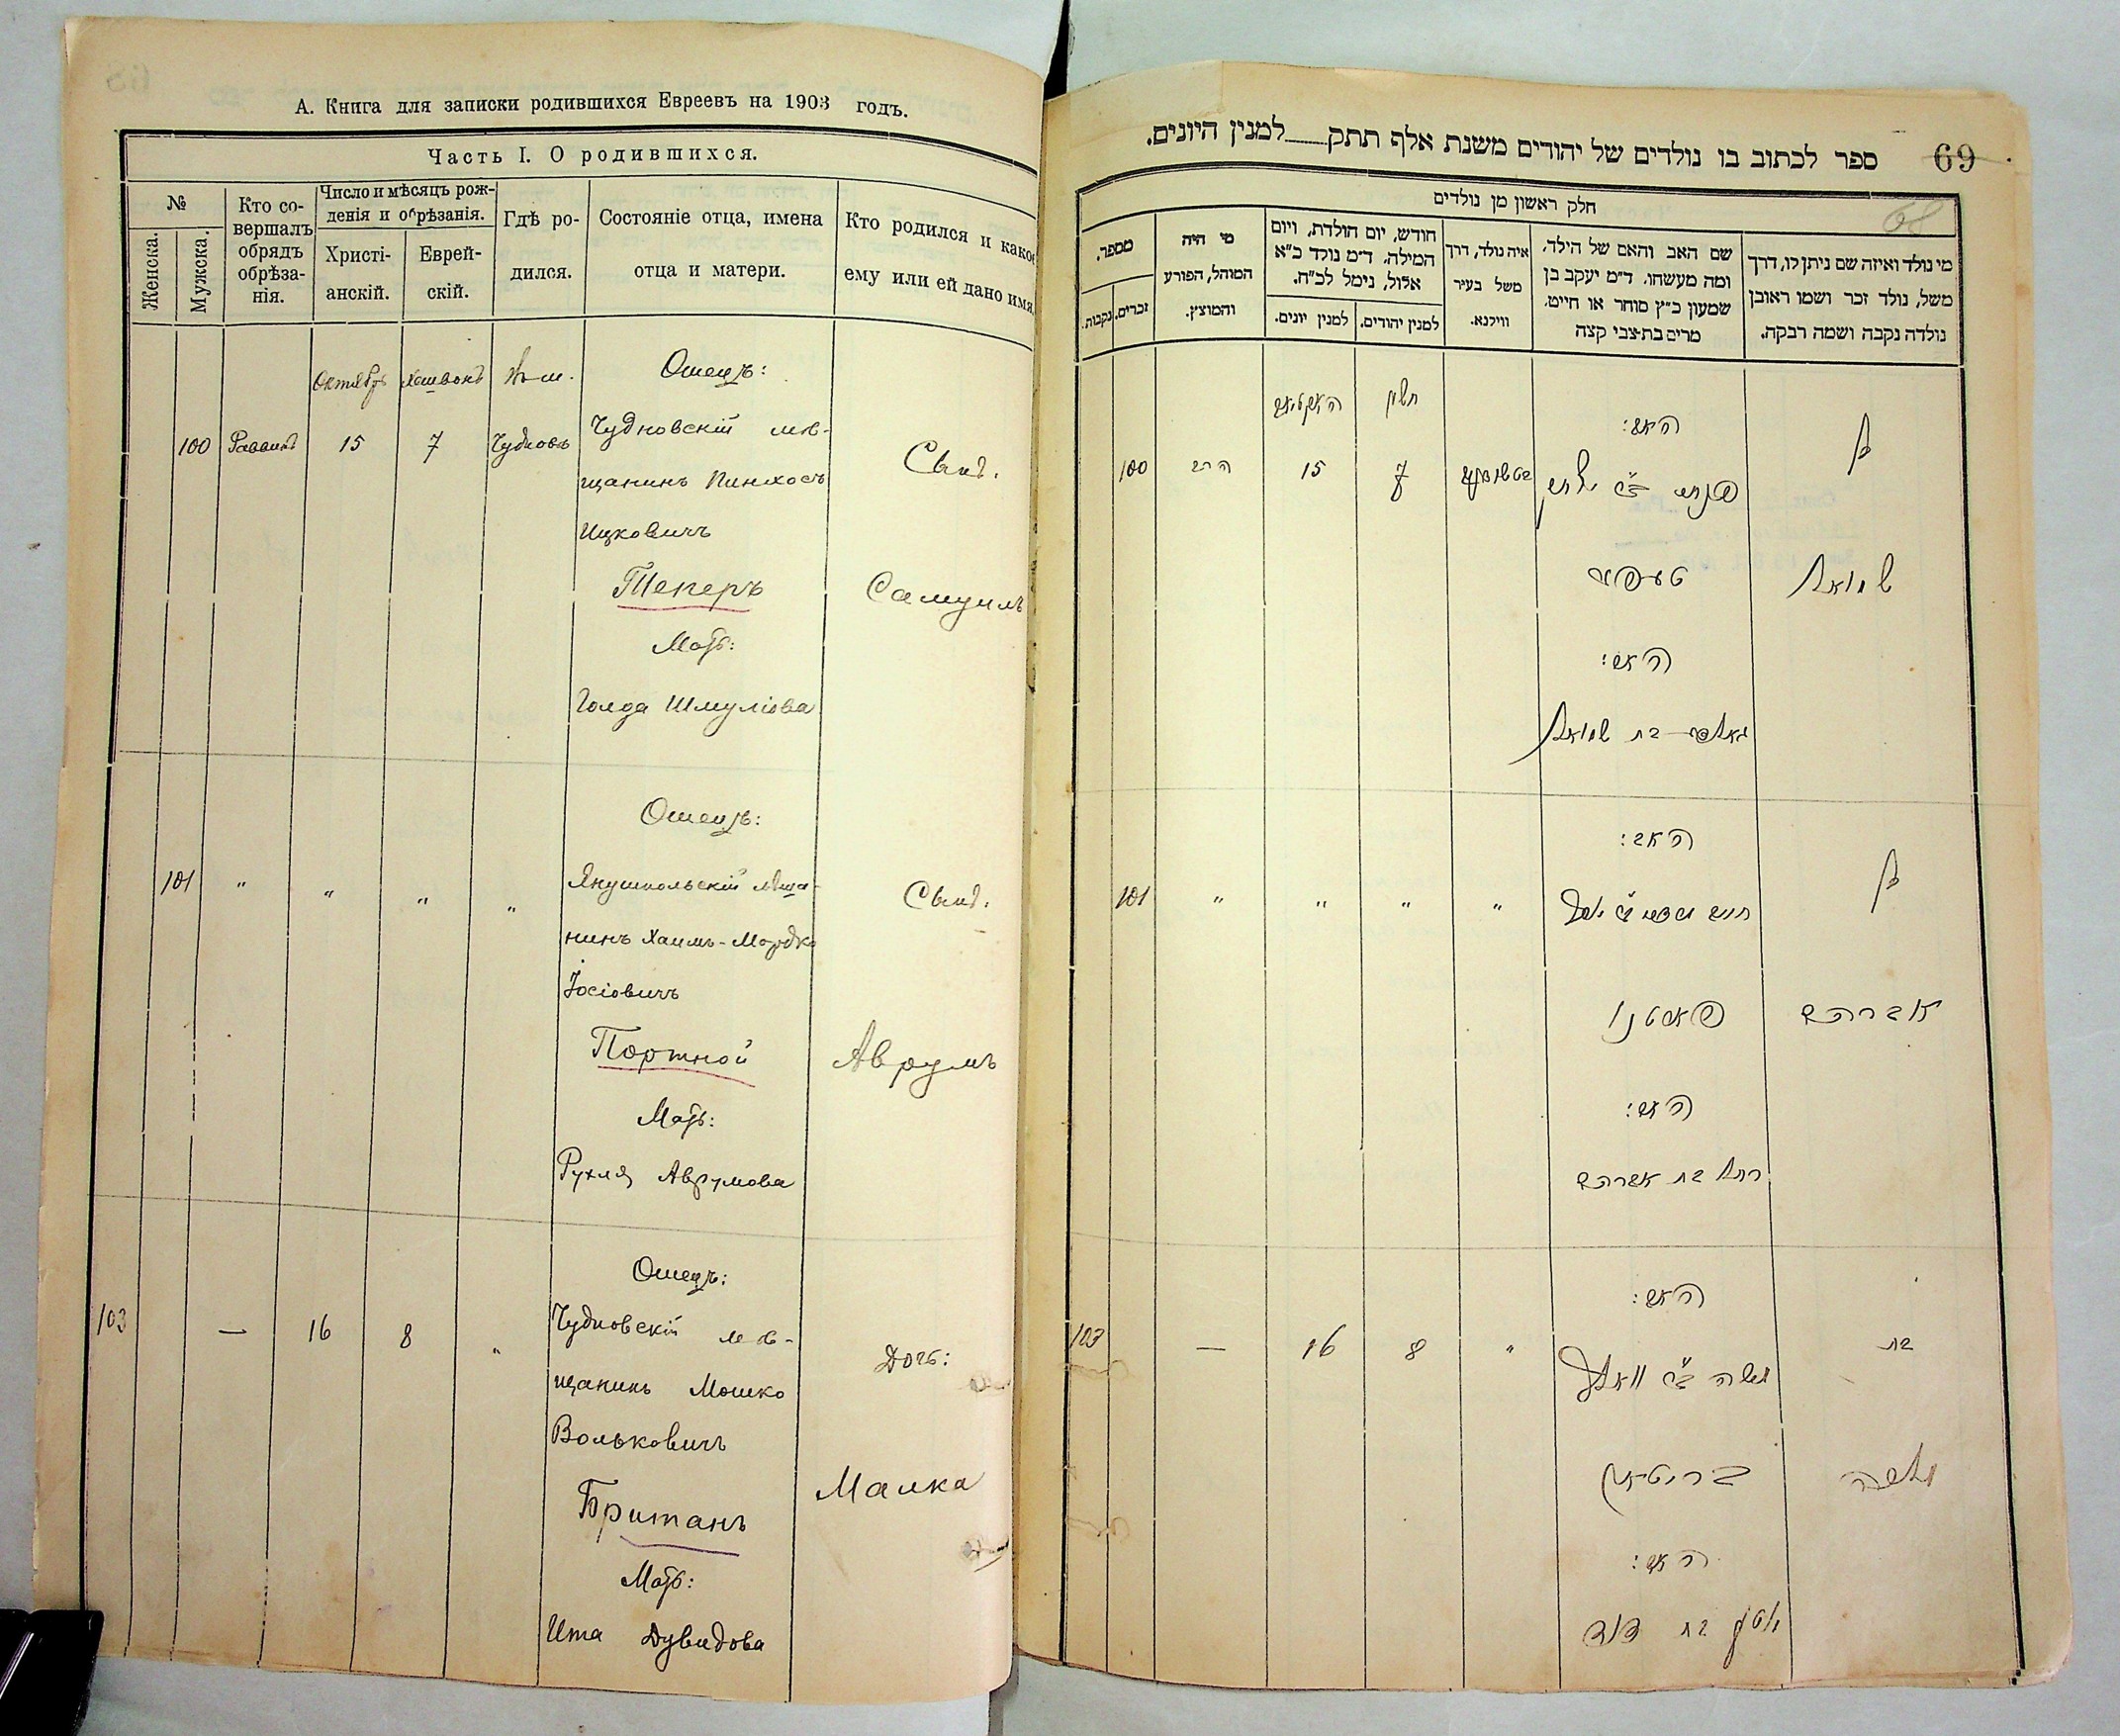 А. Книга для записки родившихся Евреевъ на 1903 годъ.
Часть I. О родившихся.
№
Женска.
Мужска.
Кто со-
вершалъ
обрядъ
обрѣза-
нія.
Число и мѣсяцъ рож-
денія и обрѣзанія.
Христі-
анскій.
Еврей-
скій.
Гдѣ ро-
дился.
Состояніе отца, имена
отца и матери.
Кто родился и какое
ему или ей дано имя.
Октябрь Хешвонъ Отецъ:
100 Раввинъ 15 7 Чудновъ Чудновскій мѣ-
щанинъ Пинхосъ
Ицковичъ
Теперъ
Мать:
Голда Шмуліова
Сынъ.
Самуилъ
Отецъ:
101 " " " " Янушпольскій мѣща-
нинъ Хаимъ-Мордко
Іосіовичъ
Портной
Мать:
Рухля Аврумова
Сынъ.
Аврумъ
Отецъ:
103 — 16 8 " Чудновскій мѣ-
щанинъ Мошко
Вольковичъ
Британъ
Мать:
Ита Дувидова
Дочь:
Малка
69
ספר לכתוב בו נולדים של יהודים משנת אלף תתק למנין היונים.
חלק ראשון מן נולדים
מי נולד ואיזה שם ניתן לו, דרך
משל, נולד זכר ושמו ראובן
נולדה נקבה ושמה רבקה.
שם האב והאם של הילד.
ומה מעשהו. ד״מ יעקב בן
שמעון כ״ץ סוחר או חייט.
מרים בת־צבי קצה
איה נולד, דרך
משל בעיר
ווילנא.
חודש, יום הולדת, ויום
המילה. ד״מ נולד כ״א
אלול, נימל לכ״ח.
למנין יהודים.
למנין יונים.
מי היה
המוהל, הפורע
והמוצץ.
מספר.
זכרים.
נקבות.
חשון
האב:
בן
100 הרב 15 7
שמואל
האם:
גאלדע בת שמואל
האב:
בן
101 " " " "
אברהם
פארטנוי
האם:
רחל בת אברהם
האב:
בת
103 — 16 8 "
משה ב״ר וואלף
בריטאן
מלכה
האם:
איטע בת דוד